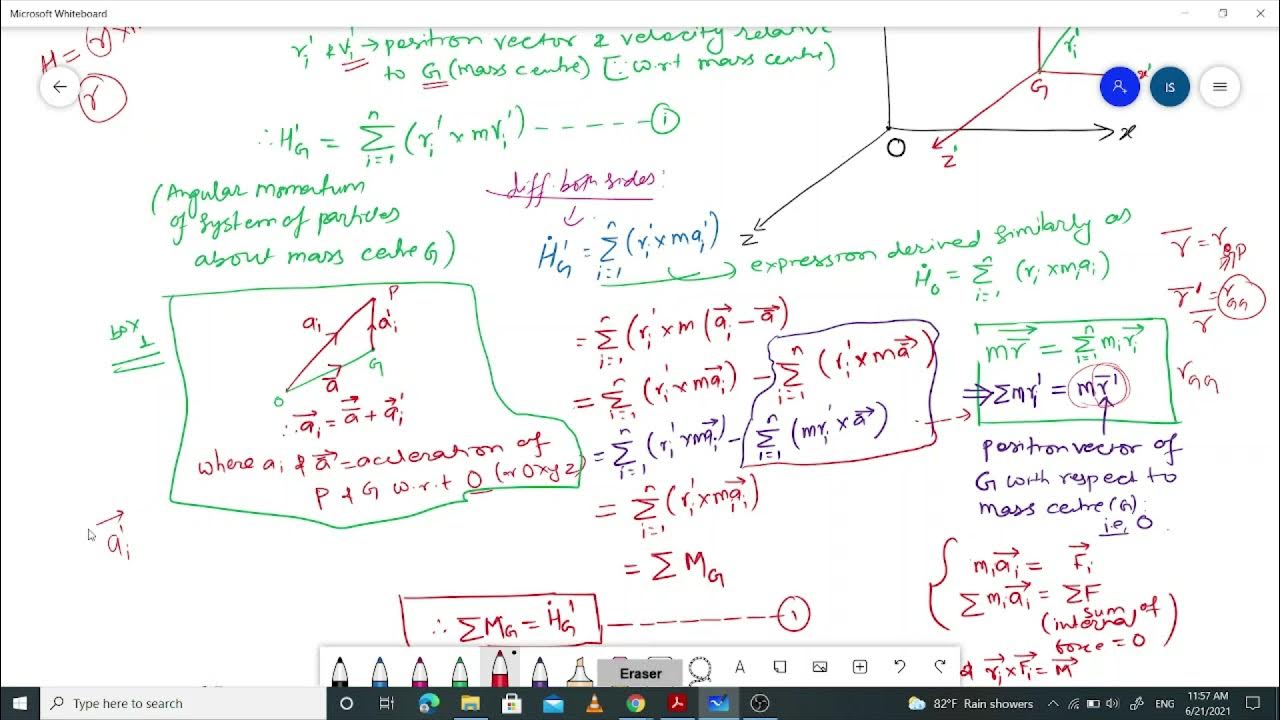 Microsoft Whiteboard
r_i' & v_i' → position vector & velocity relative
to G (mass centre) [∵ w.r.t mass centre)
r
∴ H_G' = Σ_{i=1}^{n} (r_i' × m v_i') ------ (i)
(Angular momentum
of system of particles
about mass centre G)
diff. both sides:
Ḣ_G' = Σ_{i=1}^{n} (r_i' × m a_i')
expression derived similarly as
Ḣ_o = Σ_{i=1}^{n} (r_i × m_i a_i)
IS
r_i'
G
x'
z'
O
x
z
box 1
P
a_i
a_i'
G
a⃗
O
∴ a⃗_i = a⃗ + a⃗_i'
where a_i & a⃗ = acleration of
P & G w.r.t O (or Oxyz)
= Σ_{i=1}^{n} (r_i' × m (a⃗_i - a⃗)
= Σ_{i=1}^{n} (r_i' × m a⃗_i) - Σ_{i=1}^{n} (r_i' × m a⃗)
= Σ_{i=1}^{n} (r_i' × m a⃗_i) - Σ_{i=1}^{n} (m r_i' × a⃗)
= Σ_{i=1}^{n} (r_i' × m a⃗_i)
= Σ M_G
∴ Σ M_G = Ḣ_G' -------- (1)
m r⃗ = Σ_{i=1}^{n} m_i r⃗_i
⇒ Σ m r_i' = m r̄'
position vector of
G with respect to
mass centre (G)
i.e, 0
r_GG
a⃗_i'
m_i a⃗_i = F⃗_i
Σ m_i a⃗_i = ΣF
(sum of
internal
force = 0)
& r⃗_i × F⃗_i = M⃗
Eraser
A
Type here to search
82°F Rain showers
ENG
11:57 AM
6/21/2021